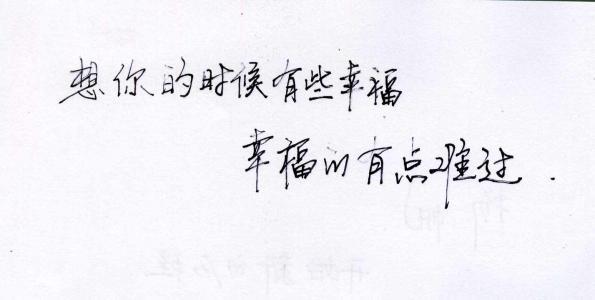 想你的时候有些幸福
幸福的有点难过.